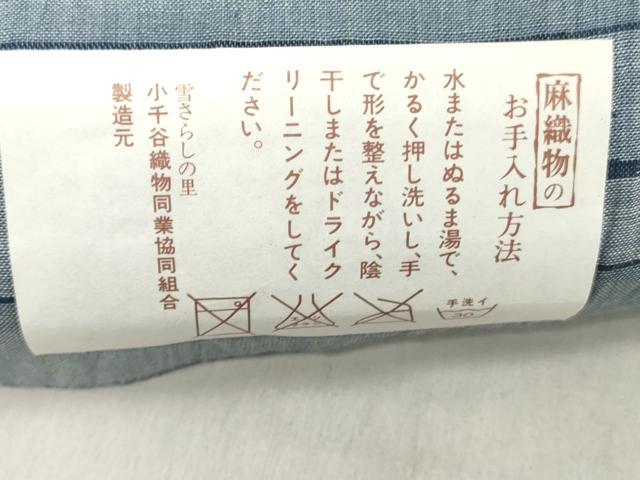 麻織物の
お手入れ方法
水またはぬるま湯で、
かるく押し洗いし、手
で形を整えながら、陰
干しまたはドライク
リーニングをしてく
ださい。
雪さらしの里
小千谷織物同業協同組合
製造元
手洗イ
30